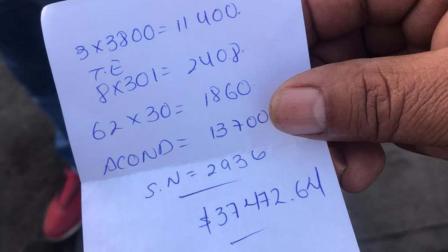 3x3800= 11 400.
T.E
8x301= 2408.
62x30= 1860
ACOND= 13700
S.N= 2936
$37472.64